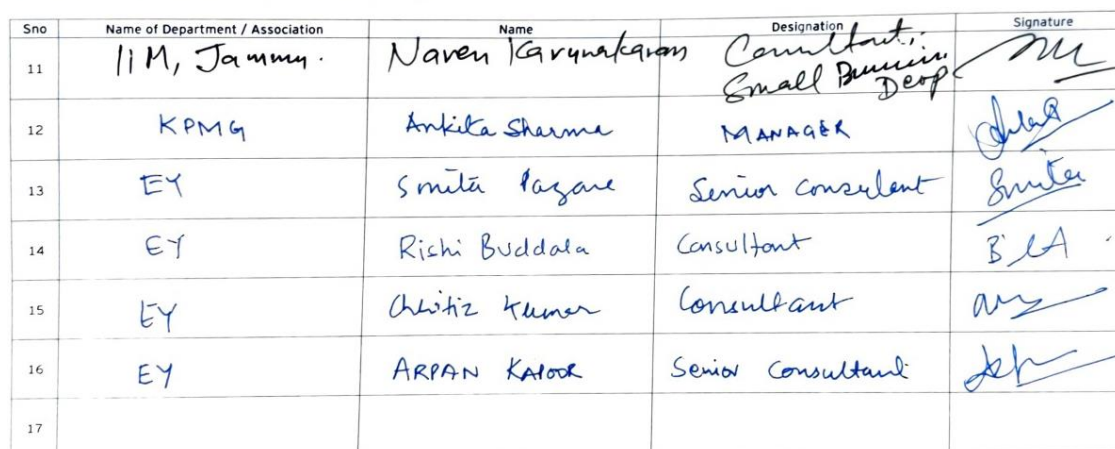 Sno Name of Department / Association Name Designation Signature
11 IIM, Jammu. Naven Karunakaran Consultant, Small Business Deop
12 KPMG Ankita Sharma MANAGER
13 EY Smita Pazare Senior Consultant Smita
14 EY Rishi Buddala Consultant
15 EY Kumar Consultant
16 EY ARPAN KAPOOR Senior Consultant
17